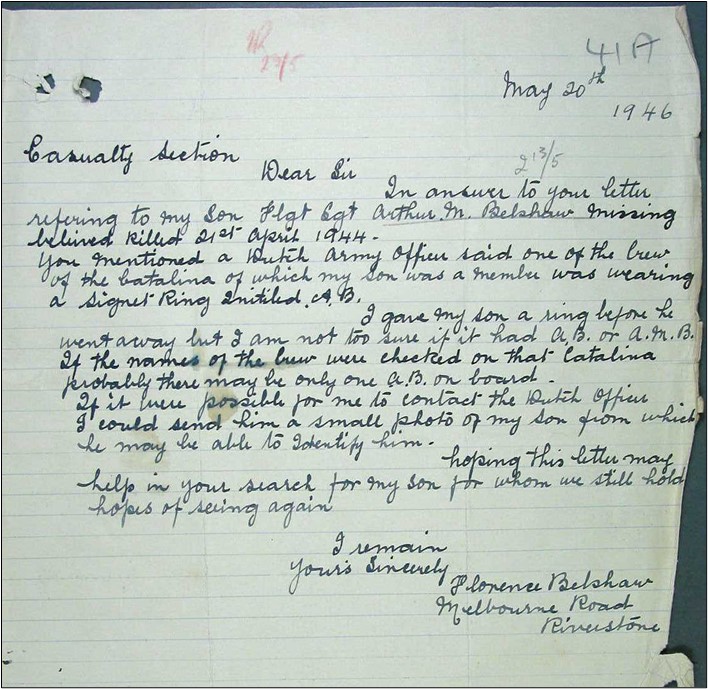 41A
23/5
May 20th
1946
Casualty Section
Dear Sir
2 13/5
In answer to your letter
refering to my Son Flgt Sgt Arthur. M. Belshaw Missing
belived killed 21st April 1944.
You mentioned a Dutch Army Officer said one of the crew
of the Catalina of which my son was a member was wearing
a Signet Ring Initiled. A.B.
I gave my son a ring before he
went away but I am not too sure if it had A.B. or A.M.B.
If the names of the crew were checked on that Catalina
probably there may be only one A.B. on board.
If it were possible for me to contact the Dutch Officer
I could send him a small photo of my son from which
he may be able to Identify him.
hoping this letter may
help in your search for my Son for whom we still hold
hopes of seing again
I remain
Your's Sincerely
Florence Belshaw
Melbourne Road
Riverstone